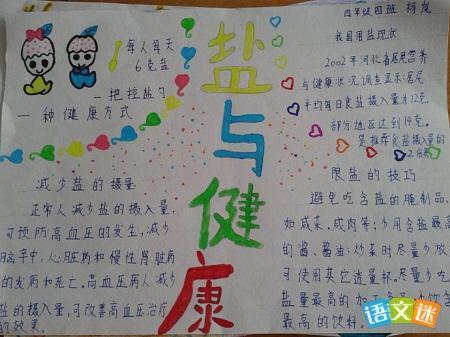 四年级四班 杨岚
每人每天
6克盐
一把控盐勺
一种健康方式
盐与健康
减少盐的摄量
正常人减少盐的摄入量,
可预防高血压的发生,减少
卒中,心脏病和慢性肾脏病
的发病和死亡。高血压病人减少
盐的摄入量,可改善高血压治疗
的效果。
我国用盐现状
2002年河北省居民营养
与健康状况调查显示:居民
平均每日食盐摄入量才12克,
部分地区达到19克。
是推荐食盐摄入量的
2倍
限盐的技巧
避免吃含盐的腌制品,
如咸菜、咸肉等;少用含盐最高
的酱、酱油;炒菜时尽量少放
可使用其它适量杯,尽量少吃
盐量最高的加工
最高的饮料。
语文迷